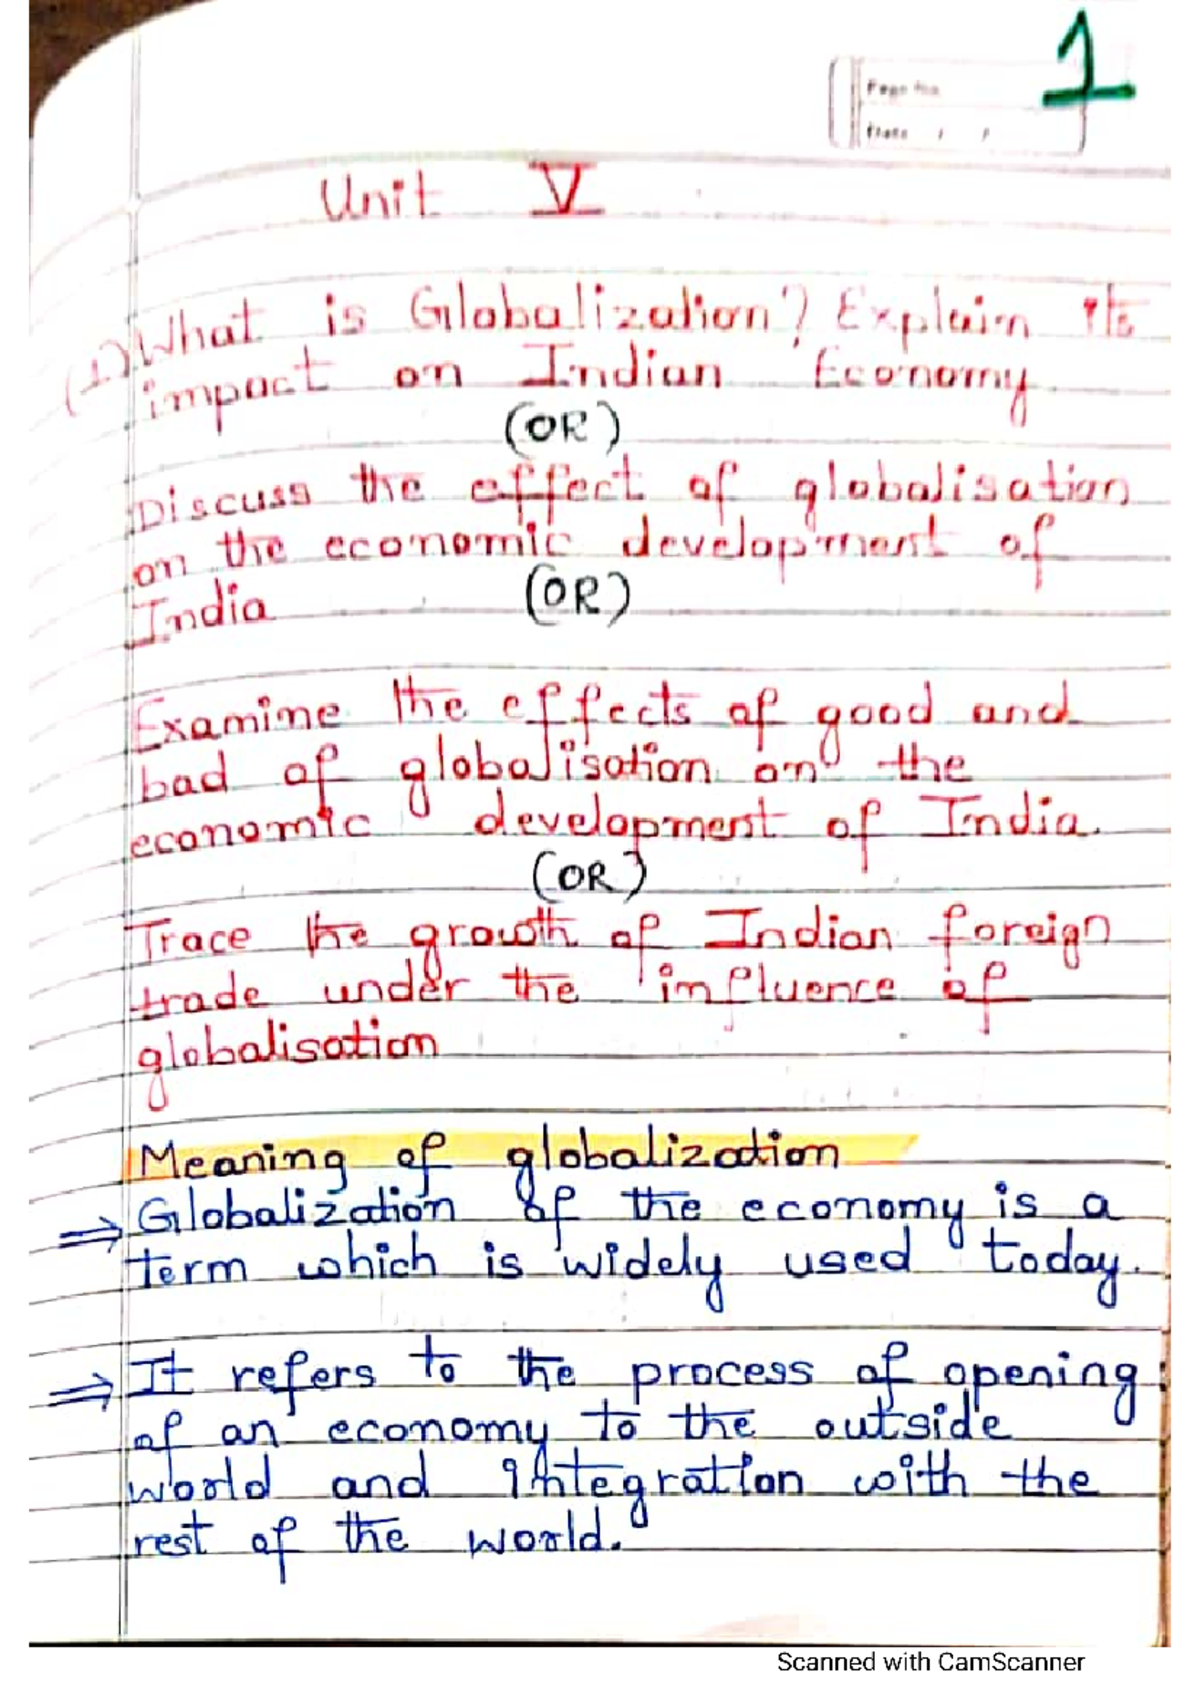 1
Page No.
Date / /
Unit V
(1) What is Globalization? Explain its
impact on Indian Economy
(OR)
Discuss the effect of globalisation
on the economic development of
India
(OR)
Examine the effects of good and
bad of globalisation on the
economic development of India.
(OR)
Trace the growth of Indian foreign
trade under the influence of
globalisation
Meaning of globalization
⇒ Globalization of the economy is a
term which is widely used today.
⇒ It refers to the process of opening
of an economy to the outside
world and integration with the
rest of the world.
Scanned with CamScanner